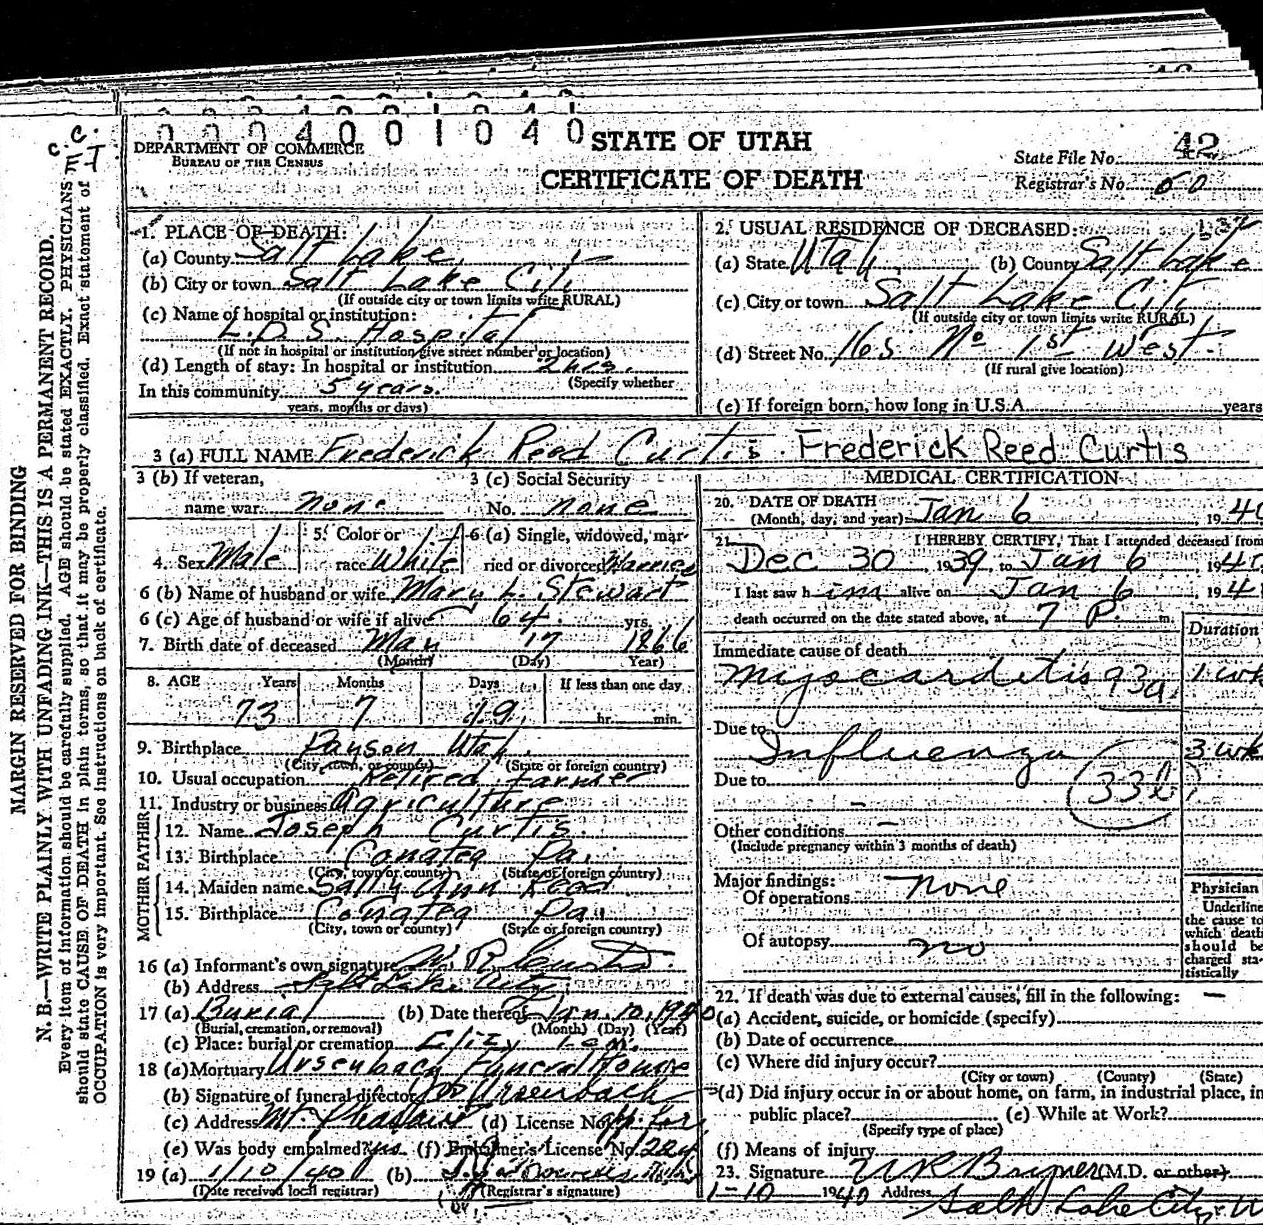 0 0 0 4 0 0 1 0 4 0
C.C.
E I
STATE OF UTAH
CERTIFICATE OF DEATH
DEPARTMENT OF COMMERCE
BUREAU OF THE CENSUS
State File No. 42
Registrar's No. 60
MARGIN RESERVED FOR BINDING
N. B.—WRITE PLAINLY WITH UNFADING INK—THIS IS A PERMANENT RECORD.
Every item of information should be carefully supplied. AGE should be stated EXACTLY. PHYSICIANS
should state CAUSE OF DEATH in plain terms, so that it may be properly classified. Exact statement of
OCCUPATION is very important. See instructions on back of certificate.
1. PLACE OF DEATH:
(a) County Salt Lake
(b) City or town Salt Lake City
(If outside city or town limits write RURAL)
(c) Name of hospital or institution:
L.D.S. Hospital
(If not in hospital or institution give street number or location)
(d) Length of stay: In hospital or institution 2 hrs.
(Specify whether
In this community 5 years.
years, months or days)
2. USUAL RESIDENCE OF DECEASED:
(a) State Utah (b) County Salt Lake
(c) City or town Salt Lake City
(If outside city or town limits write RURAL)
(d) Street No. 165 No 1st West.
(If rural give location)
(e) If foreign born, how long in U.S.A. years
3 (a) FULL NAME Frederick Reed Curtis Frederick Reed Curtis
3 (b) If veteran,
name war none
3 (c) Social Security
No. none
4. Sex Male
5. Color or
race White
6 (a) Single, widowed, mar-
ried or divorced Married
6 (b) Name of husband or wife Mary L. Stewart
6 (c) Age of husband or wife if alive 64 yrs.
7. Birth date of deceased May 17 1866
(Month) (Day) Year)
8. AGE Years Months Days If less than one day
73 7 19 hr. min.
9. Birthplace Payson Utah
(City, town, or county) (State or foreign country)
10. Usual occupation Retired farmer
11. Industry or business Agriculture
FATHER
12. Name Joseph Curtis
13. Birthplace Pa.
(City, town or county) (State of foreign country)
MOTHER
14. Maiden name Sally Ann Reed
15. Birthplace Pa.
(City, town or county) (State or foreign country)
16 (a) Informant's own signature W. R. Curtis
(b) Address Salt Lake City
17 (a) Burial (b) Date thereof Jan. 10, 1940
(Burial, cremation, or removal) (Month) (Day) (Year)
(c) Place: burial or cremation City Cem.
18 (a) Mortuary Ursenbach Funeral Home
(b) Signature of funeral director Ursenbach
(c) Address Mt. Pleasant (d) License No. app. for
(e) Was body embalmed? yes (f) Embalmer's License No. 224
19 (a) 1/10/40 (b)
(Date received local registrar) (Registrar's signature)
MEDICAL CERTIFICATION
20. DATE OF DEATH
(Month, day, and year) Jan 6, 1940
21. I HEREBY CERTIFY, That I attended deceased from
Dec 30, 1939, to Jan 6, 1940
I last saw h im alive on Jan 6, 194
death occurred on the date stated above, at 7 P. m.
Duration
Immediate cause of death
Myocarditis 93a 1 wk
Due to Influenza 3 wk
Due to (33b)
Other conditions —
(Include pregnancy within 3 months of death)
Major findings:
Of operations none
Of autopsy no
Physician
Underline
the cause to
which death
should be
charged sta-
tistically
22. If death was due to external causes, fill in the following: —
(a) Accident, suicide, or homicide (specify)
(b) Date of occurrence
(c) Where did injury occur?
(City or town) (County) (State)
(d) Did injury occur in or about home, on farm, in industrial place, in
public place? (e) While at Work?
(Specify type of place)
(f) Means of injury
23. Signature (M.D. or other)
1-10 1940 Address Salt Lake City, U